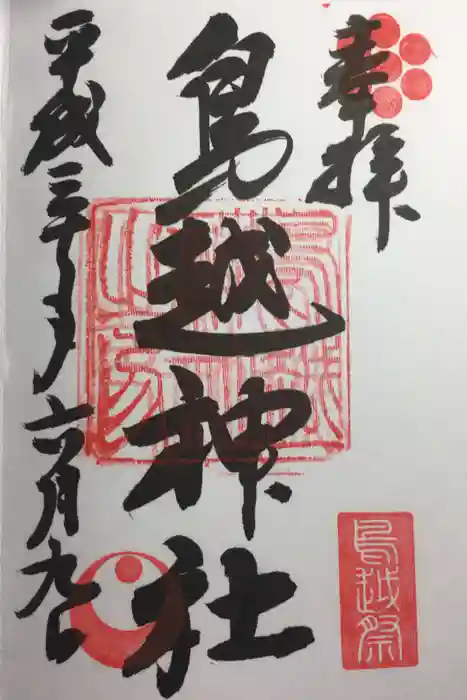 奉拝
鳥越神社
平成三十年六月九日
鳥越祭